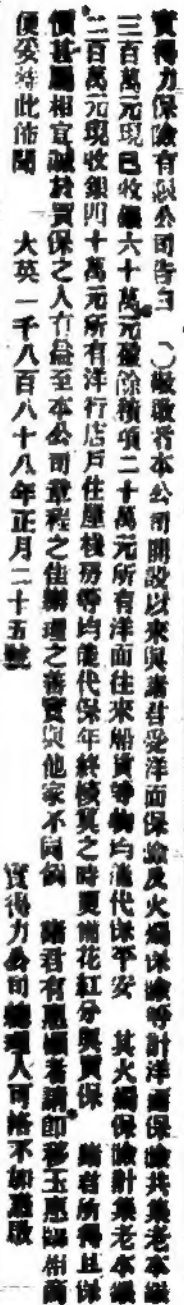 寳得力保險有限公司告白　○敬啟者本公司開設以來與諸君受洋面保險及火燭保險等計洋面保險共集老本銀
三百萬元現已收銀六十萬元並餘積項二十萬元所有洋面往來船貨等物均能代保平安　其火燭保險計集老本銀
二百萬元現收銀四十萬元所有洋行店戶住屋棧房等均能代保年終核算之時更備花紅分與買保　諸君所得且保
價甚屬相宜誠於買保之人有益至本公司章程之佳辦理之善實與他家不同倘　諸君有惠顧者請即移玉惠臨相商
便妥特此佈聞　　大英一千八百八十八年正月二十五號　　　　　寳得力公司總理人可格不如啟